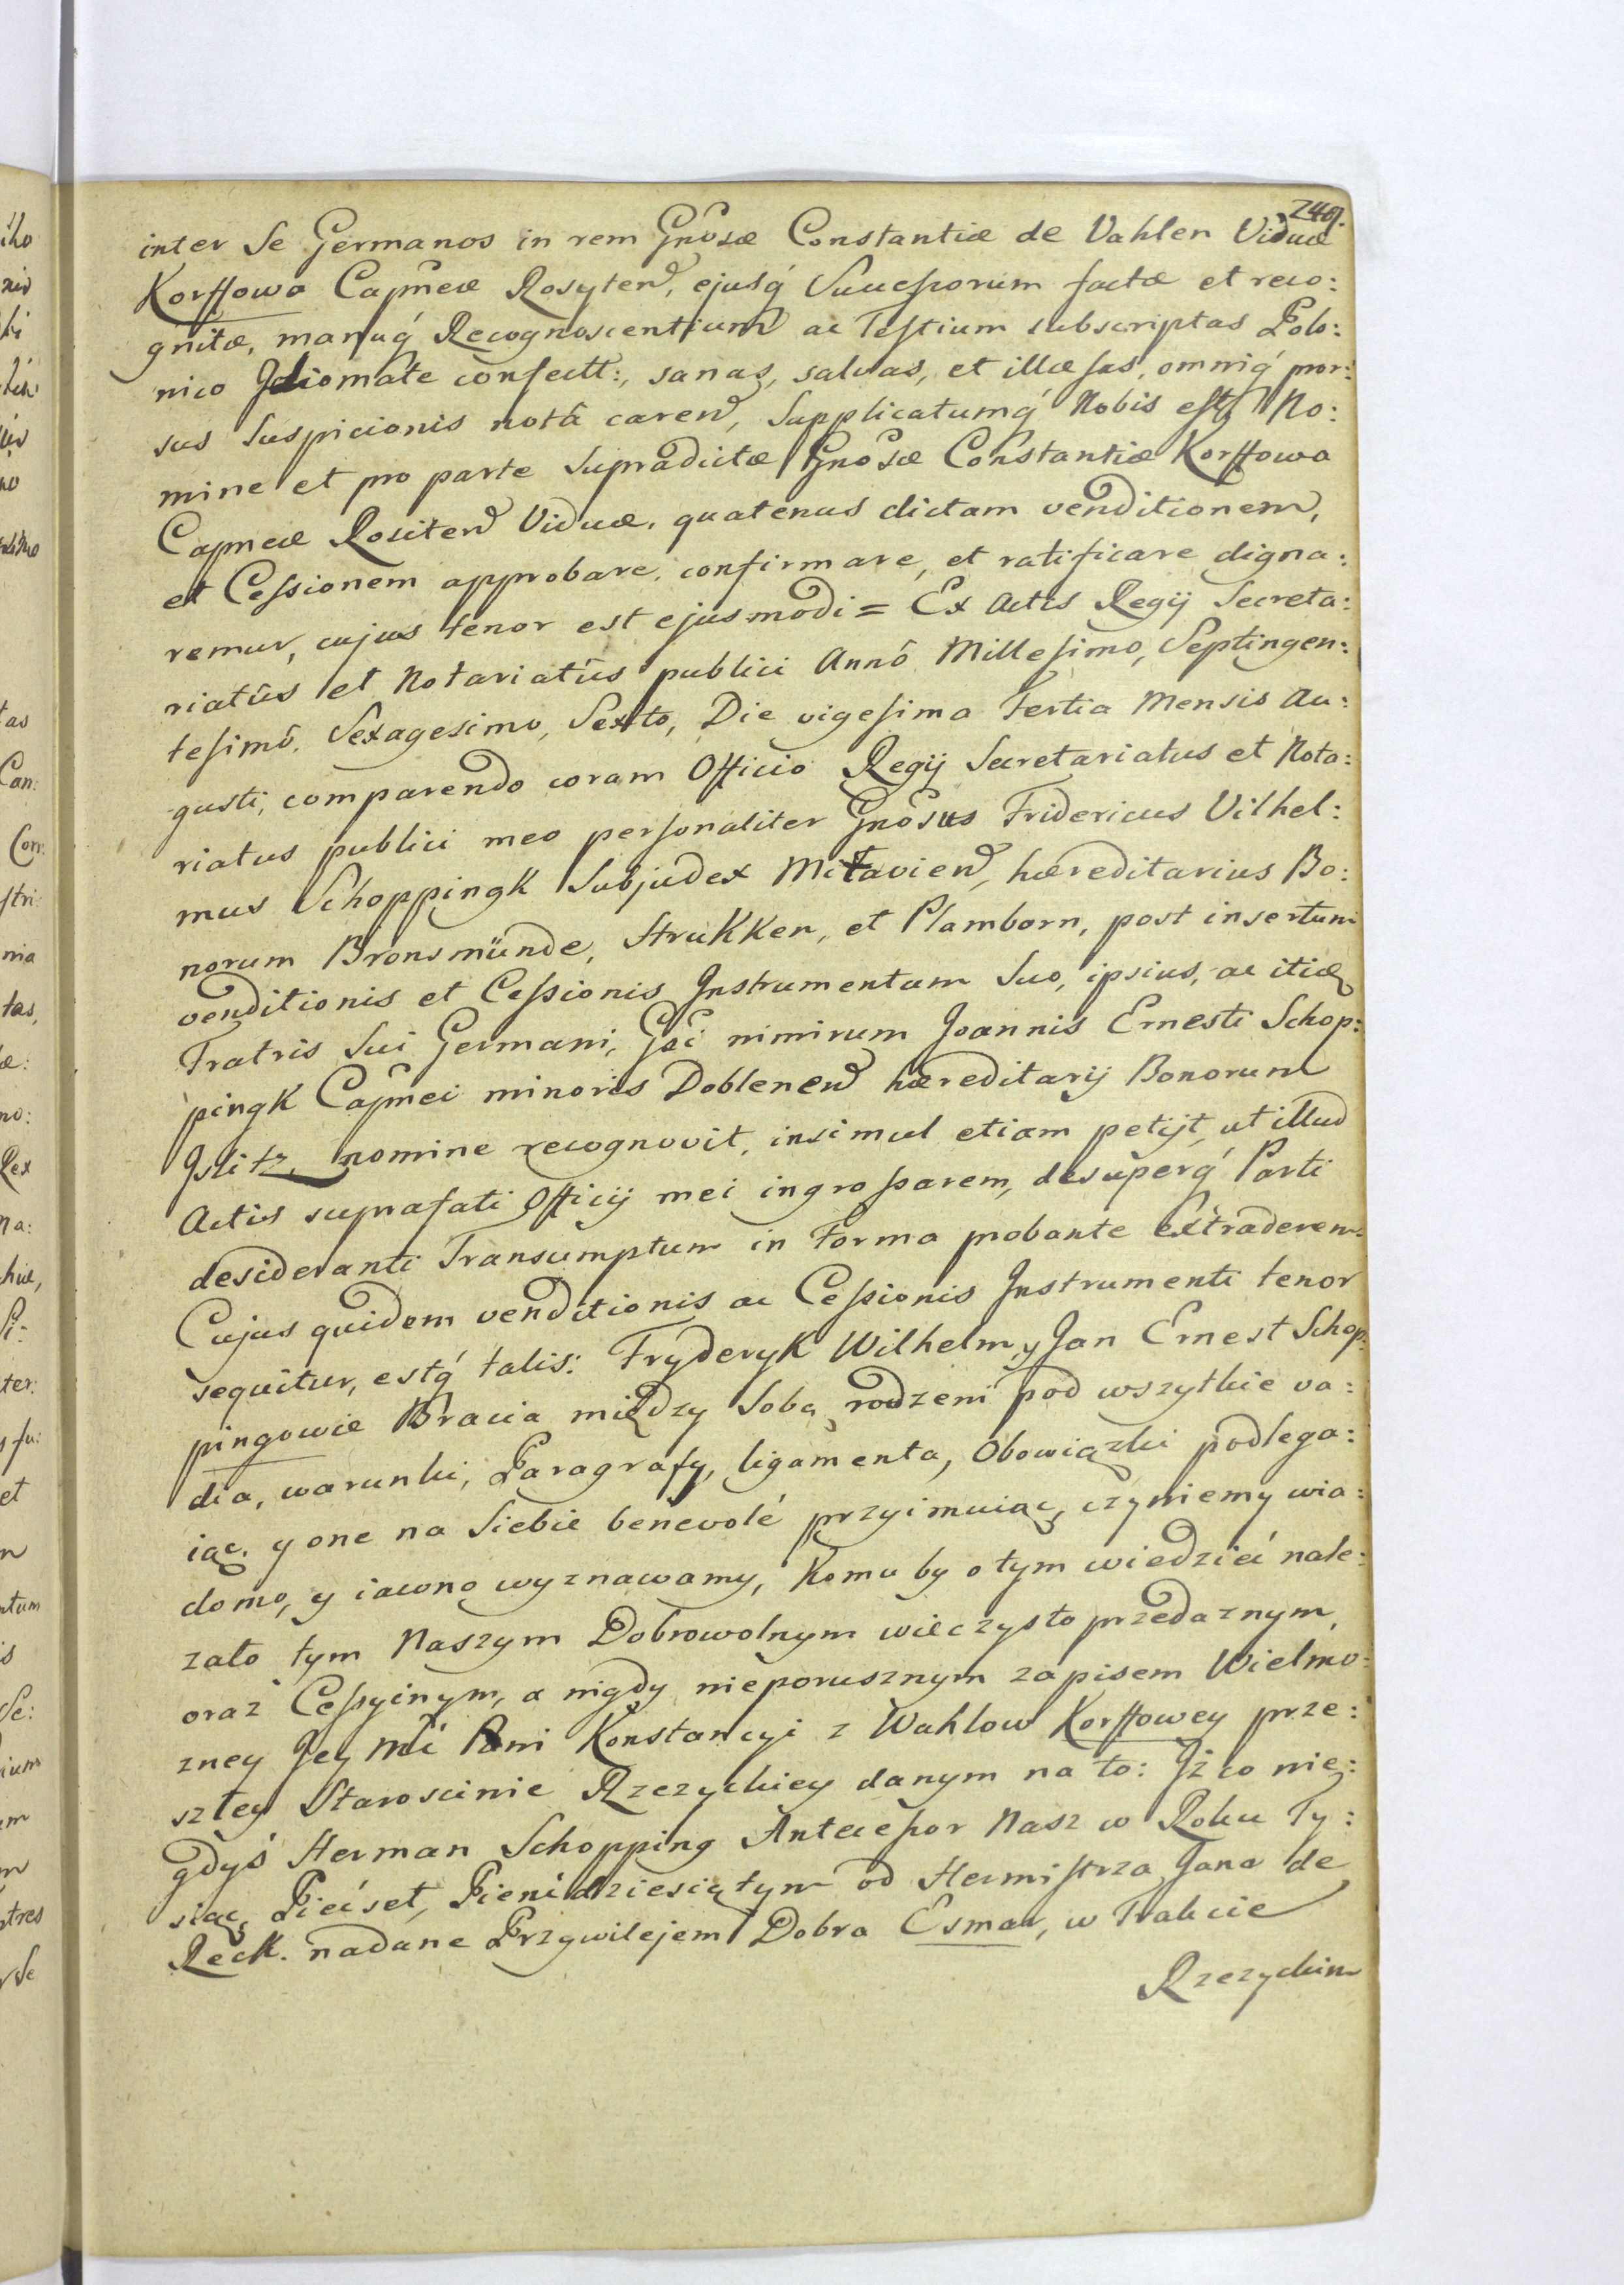 249.
inter Se Germanos in rem Gnosæ Constantiæ de Vahlen Viduæ
Korffowa Capneæ Rosyten, ejusq́ Successorum factæ et reco:
gnitæ, manuq́ Recognoscentium ac Testium subscriptas Polo:
nico Idiomate confectt:, sanas, salvas, et illæsas, omniq́ pror:
sus Suspicionis notâ caren, Supplicatumq́ Nobis est, No:
mine et pro parte Supradictæ Gnosæ Constantiæ Korffowa
Capneæ Rositen Viduæ, quatenus dictam venditionem,
et Cessionem approbare, confirmare, et ratificare digna:
remur, cujus tenor est ejusmodi = Ex Actis Regij Secreta:
riatûs et Notariatûs publici Annô Millesimo, Septingen:
tesimô, Sexagesimo, Sexto, Die vigesima tertia Mensis Au:
gusti, comparendo coram Officio Regij Secretariatus et Nota:
riatus publici meo personaliter Gnosus Fridericus Vilhel:
mus Schoppingk Subjudex Mitavien, hæreditarius Bo:
norum Bronsmünde, StruKKen, et Plamborn, post insertum
venditionis et Cessionis Instrumentum Suo, ipsius, ac itiæ
Fratris Sui Germani, Gsi nimirum Joannis Ernesti Schop:
pingk Capnei minoris Doblenen hæreditarij Bonorum
Islitz nomine recognovit, insimul etiam petijt, ut illud
Actis suprafati Officij mei ingrossarem, desuperq́ Parti
desideranti Transumptum in forma probante extraderem.
Cujus quidem venditionis ac Cessionis Instrumenti tenor
sequitur, estq́ talis: FryderyK Wilhelm, y Jan Ernest Schop:
pingowie Bracia między Sobą rodzeni pod wszytkie va:
dia, warunki, Paragrafy, ligamenta, Obowiązki podlega:
iąc, y one na Siebie benevolé przyimuiąc, czyniemy wia:
domo, y iawno wyznawamy, Komu by o tym wiedzieć nale:
zało tym Naszym Dobrowolnym wieczysto przedaznym,
oraz Cessyinym, a nigdy nieporusznym zapisem Wielmo:
zney Jey Mć Pani Konstancyi z Wahlow Korffowey prze:
szłey Staroscinie Rzezyckiey danym na to: Iż co nie:
gdyś Herman Schopping Antecessor Nasz w Roku Ty:
siąc, Piećset, Pieńdziesiątym od Hermistrza Jana de
RecK. nadane Przywilejem Dobra Esmar, w Trakcie
Rzezyckim